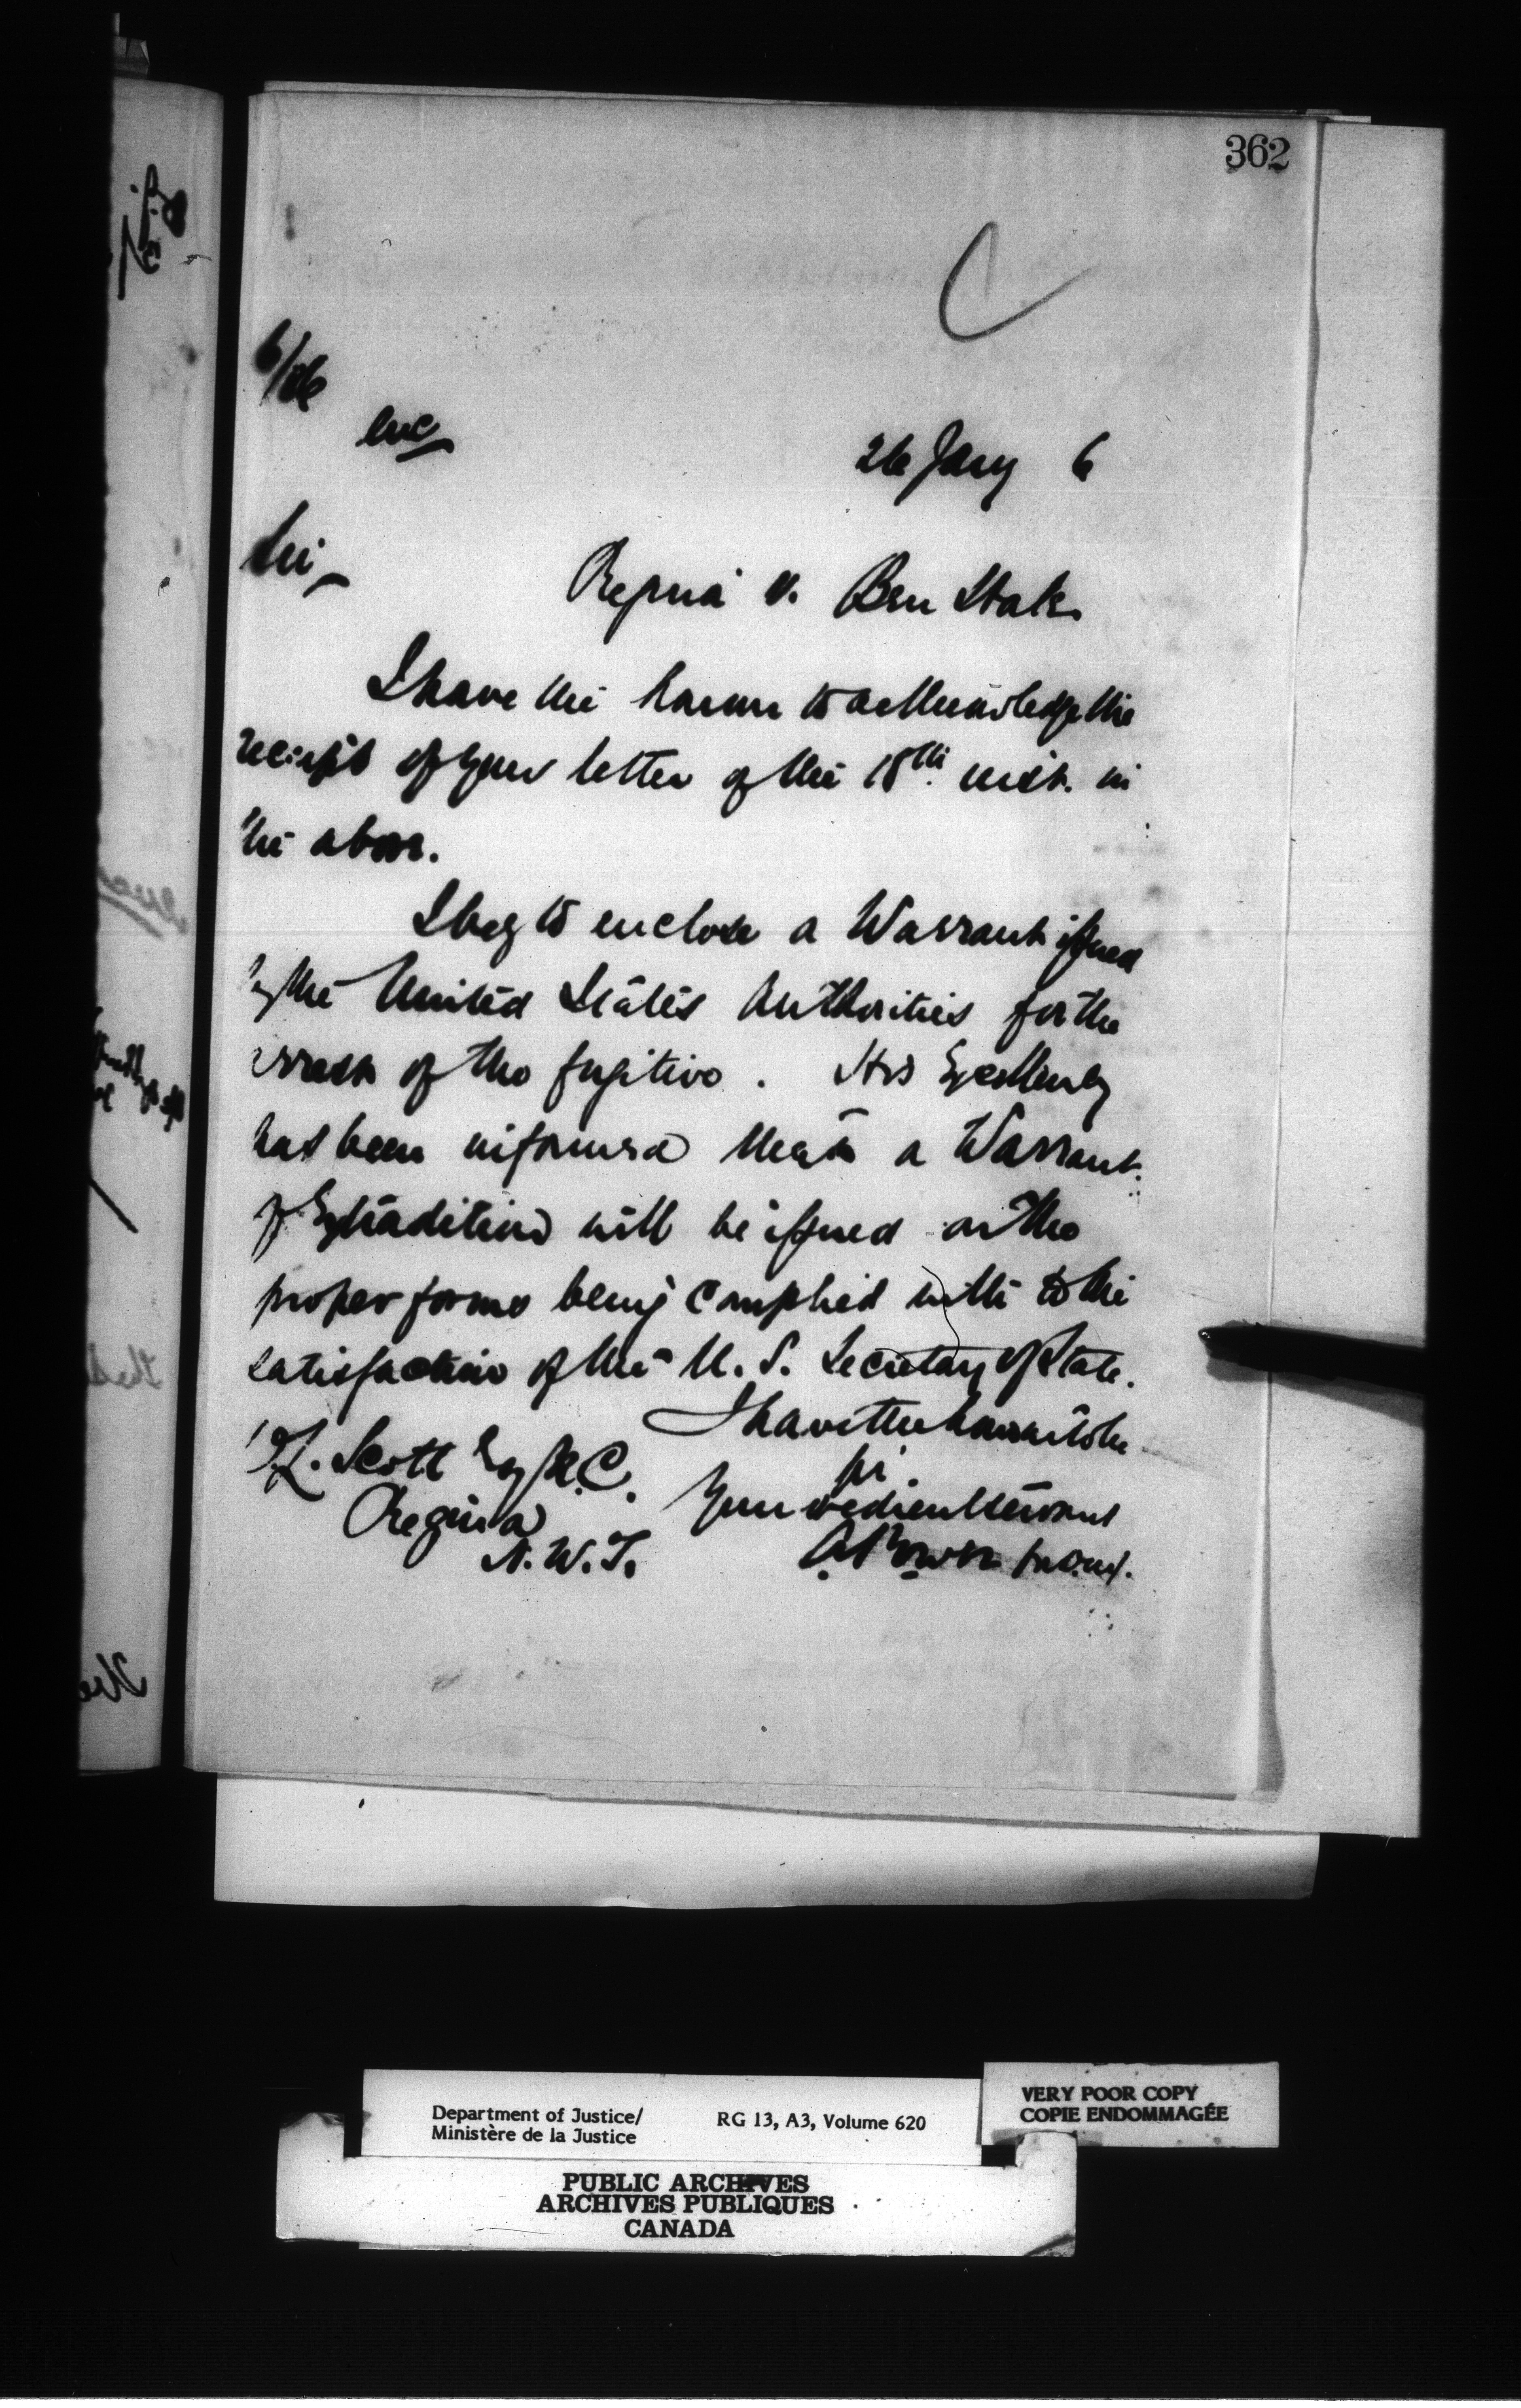 362
6/86
enc
26 Jany 6
Sir,
Regina v. Ben Hale.
I have the honour to acknowledge the
receipt of your letter of the 18th inst. in
the above.
I beg to enclose a Warrant issued
by the United States Authorities for the
arrest of the fugitive. His Excellency
has been informed that a Warrant
of Extradition will be issued on the
proper forms being complied with to the
satisfaction of the U. S. Secretary of State.
I have the honour to be
Sir
D.L. Scott Esq Q.C.
Your obedient servant
Regina
N.W.T.
A. Power
Department of Justice/
Ministère de la Justice
RG 13, A3, Volume 620
VERY POOR COPY
COPIE ENDOMMAGÉE
PUBLIC ARCHIVES
ARCHIVES PUBLIQUES
CANADA